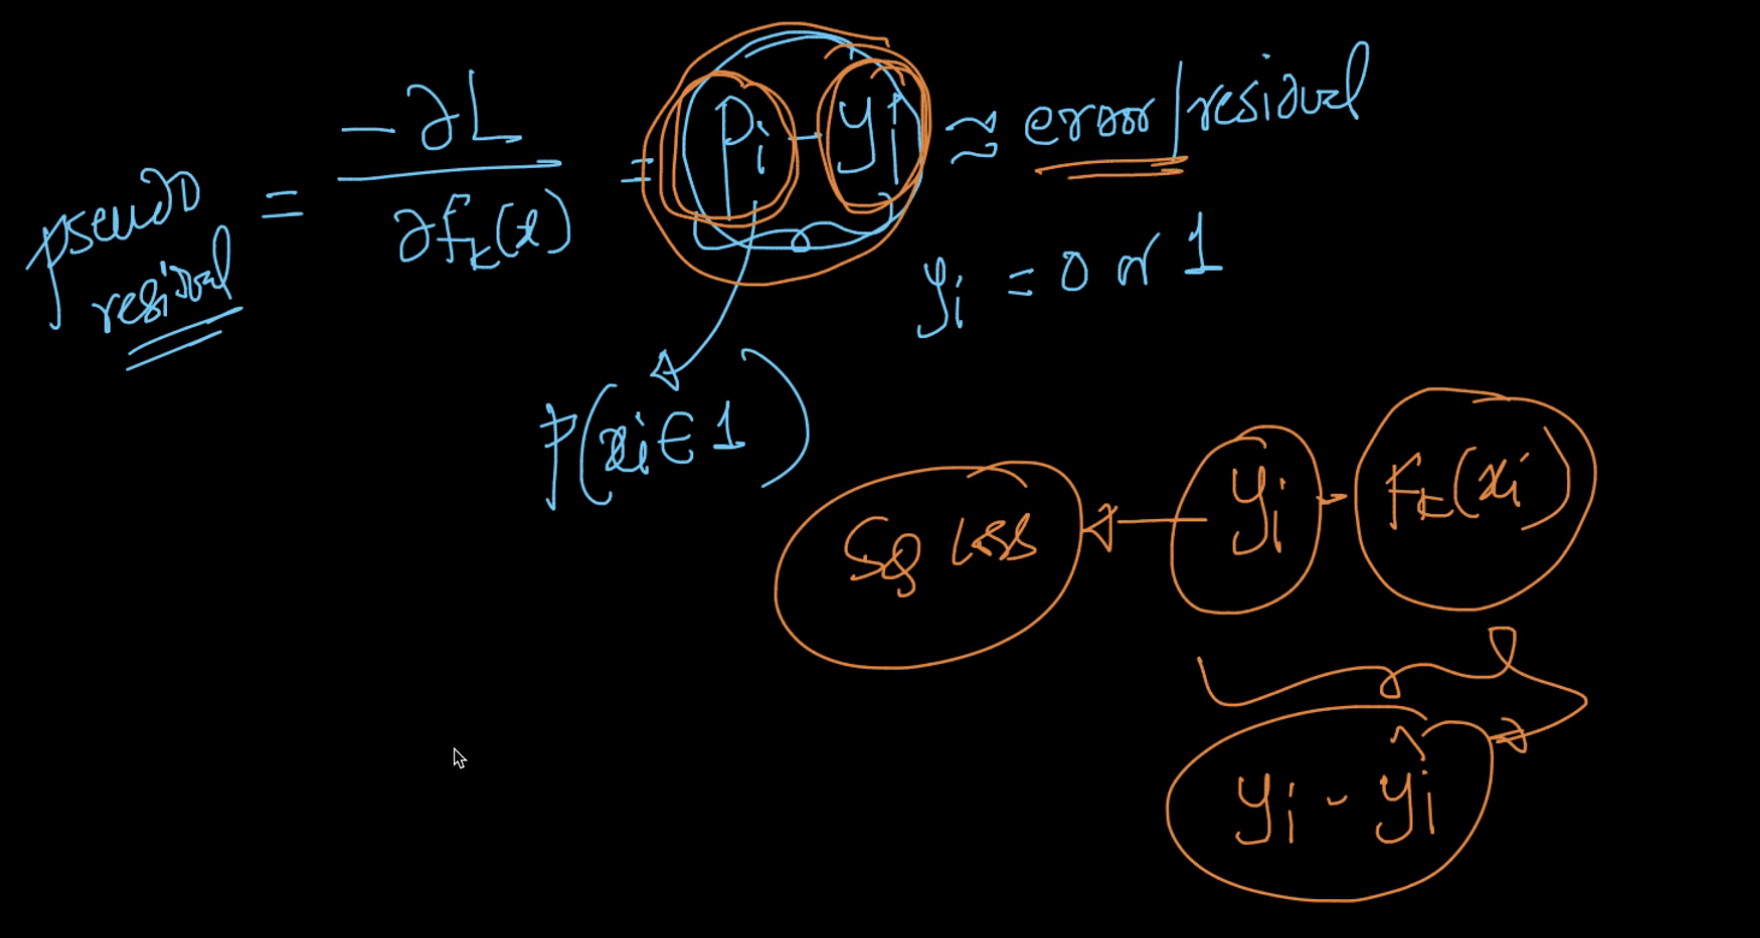 pseudo residual = -∂L / ∂F_k(x) = p_i - y_i ≈ error/residual
y_i = 0 or 1
P(x_i ∈ 1)
Sq loss ← y_i - F_k(x_i)
y_i - ŷ_i